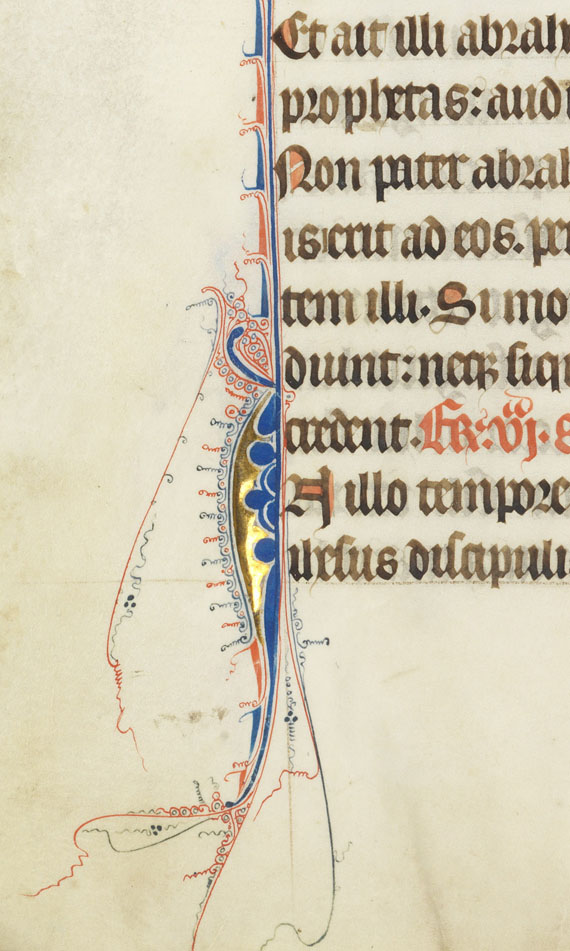 Et ait illi abrah
prophetas: audi
Non pater abrah
ierit ad eos. pe
tem illi. Si mo
diunt: neqꝫ siq
credent. vj.
illo tempore
ihesus discipuli